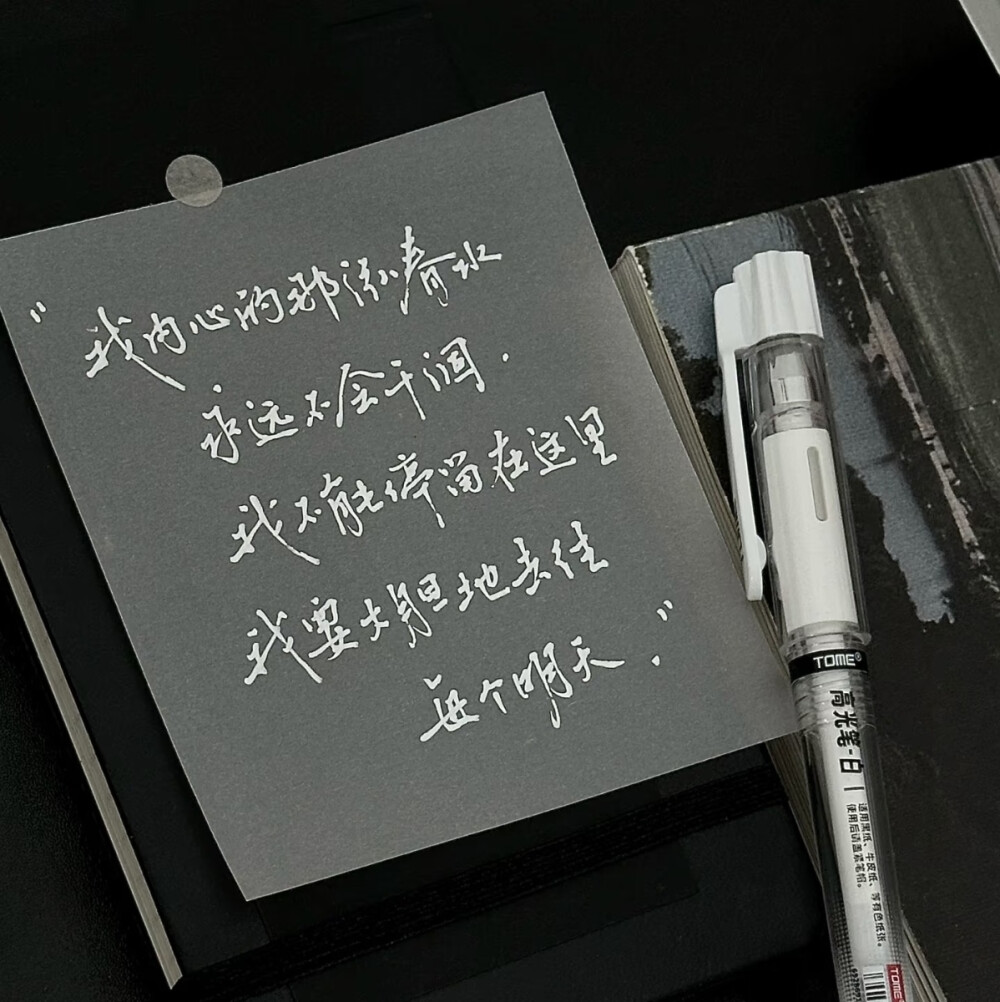 "我内心的那泓春水
永远不会干涸.
我不能停留在这里
我要大胆地去往
每个明天."
TOME®
高光笔-白
适用黑纸、牛皮纸、等有色纸张。
使用后请盖紧笔帽。
TOME